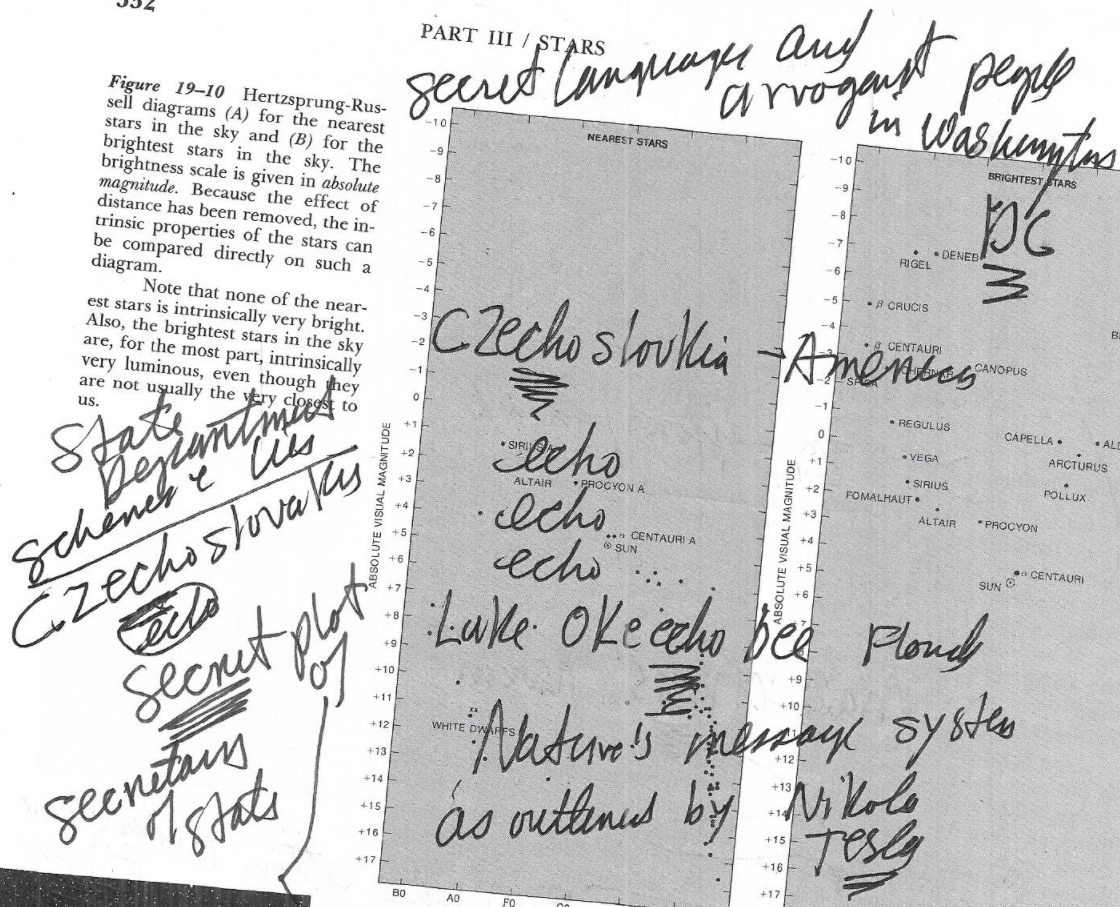 552
PART III / STARS
secret language and
arrogant people
in Washington
DC
Figure 19–10 Hertzsprung-Rus-
sell diagrams (A) for the nearest
stars in the sky and (B) for the
brightest stars in the sky. The
brightness scale is given in absolute
magnitude. Because the effect of
distance has been removed, the in-
trinsic properties of the stars can
be compared directly on such a
diagram.
Note that none of the near-
est stars is intrinsically very bright.
Also, the brightest stars in the sky
are, for the most part, intrinsically
very luminous, even though they
are not usually the very closest to
us.
State
Department
schemes & lies
Czechoslovakia
echo
secret plot
of
secretary
of state
NEAREST STARS
ABSOLUTE VISUAL MAGNITUDE
-10
-9
-7
-6
-5
-4
-3
-2
-1
0
+1
+2
+3
+4
+5
+6
+7
+8
+9
+10
+11
+12
+13
+14
+15
+16
+17
B0 A0 F0
Czechoslovkia - America
SIRIUS A
echo
ALTAIR PROCYON A
echo
α CENTAURI A
SUN
echo
Lake Okeechobee
WHITE DWARFS
Nature's message system
as outlined by Nikola
Tesla
BRIGHTEST STARS
ABSOLUTE VISUAL MAGNITUDE
-10
-9
-8
-7
-6
-5
-4
-3
-2
-1
0
+1
+2
+3
+4
+5
+6
+9
+10
+11
+12
+13
+14
+15
+16
+17
RIGEL DENEB
β CRUCIS
β CENTAURI
ACHERNAR CANOPUS
SPICA
REGULUS CAPELLA
VEGA ARCTURUS
SIRIUS POLLUX
FOMALHAUT
ALTAIR PROCYON
α CENTAURI
SUN